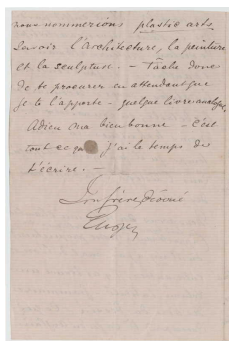 nous nommerions plastic arts
savoir l'architecture, la peinture
et la sculpture. — Tâche donc
de te procurer en attendant que
je te l'apporte — quelque livre analogue,
Adieu ma bien bonne — C'est
tout ce que j'ai le temps de
t'écrire. —
Ton frère dévoué